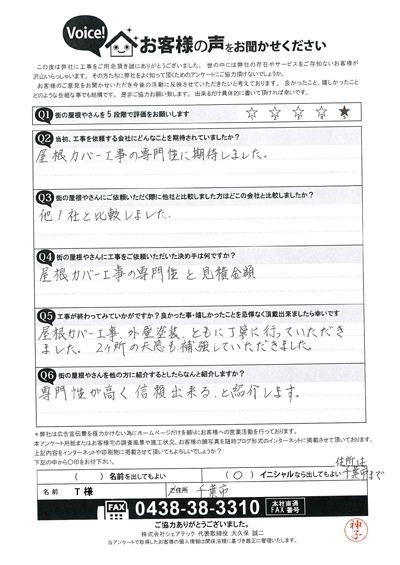 Voice!
お客様の声をお聞かせください
この度は弊社に工事をご用命頂き誠にありがとうございました。世の中には弊社の存在やサービスをご存知ないお客様が
沢山いらっしゃいます。その方たちに弊社をよく知って頂くためのアンケートにご協力頂けないでしょうか。
お客様のご意見をお聞かせいただき今後の活動に反映させていただきたいと考えております。良かったこと、嬉しかったこと
どのような些細な事でも結構です。是非ご協力お願い致します。出来るだけ具体的に書いて頂ければ幸いです。
Q1 街の屋根やさんを5段階で評価をお願いします
1 2 3 4 ★
Q2 当初、工事を依頼する会社にどんなことを期待されていましたか?
屋根カバー工事の専門性に期待しました。
Q3 街の屋根やさんにご依頼いただく際に他社と比較しました方はどこの会社と比較しましたか?
他1社と比較しました。
Q4 街の屋根やさんに工事をご依頼いただいた決め手は何ですか?
屋根カバー工事の専門性と見積金額
Q5 工事が終わってみていかがですか?良かった事・嬉しかったことを忌憚なく頂戴出来ましたら幸いです
屋根カバー工事、外壁塗装、ともに丁寧に行っていただき
ました。2ヶ所の天窓も補強していただきました。
Q6 街の屋根やさんを他の方に紹介するとしたらなんと紹介しますか?
専門性が高く信頼出来る、と紹介します。
※弊社は広告宣伝費を極力かけない為にホームページだけを頼りにお客様への営業活動を行っております。
本アンケート用紙またはお客様宅の調査風景や施工状況、お客様の顔写真を随時ブログ形式のインターネットに掲載させて頂いております。
上記内容をインターネットや印刷物に掲載させて頂いてもよろしいでしょうか?
下記の中から○印をお付け下さい。
住所は
千葉市まで
( )名前を出してもよい
(○)イニシャルなら出してもよい
名前 T様
ご住所 千葉市
FAX 0438-38-3310 本社直通 FAX番号
ご協力ありがとうございました。
株式会社シェアテック 代表取締役 大久保 誠二
当アンケートで取得したお客様の個人情報は関係法規に基づき厳正に管理いたします。
神子